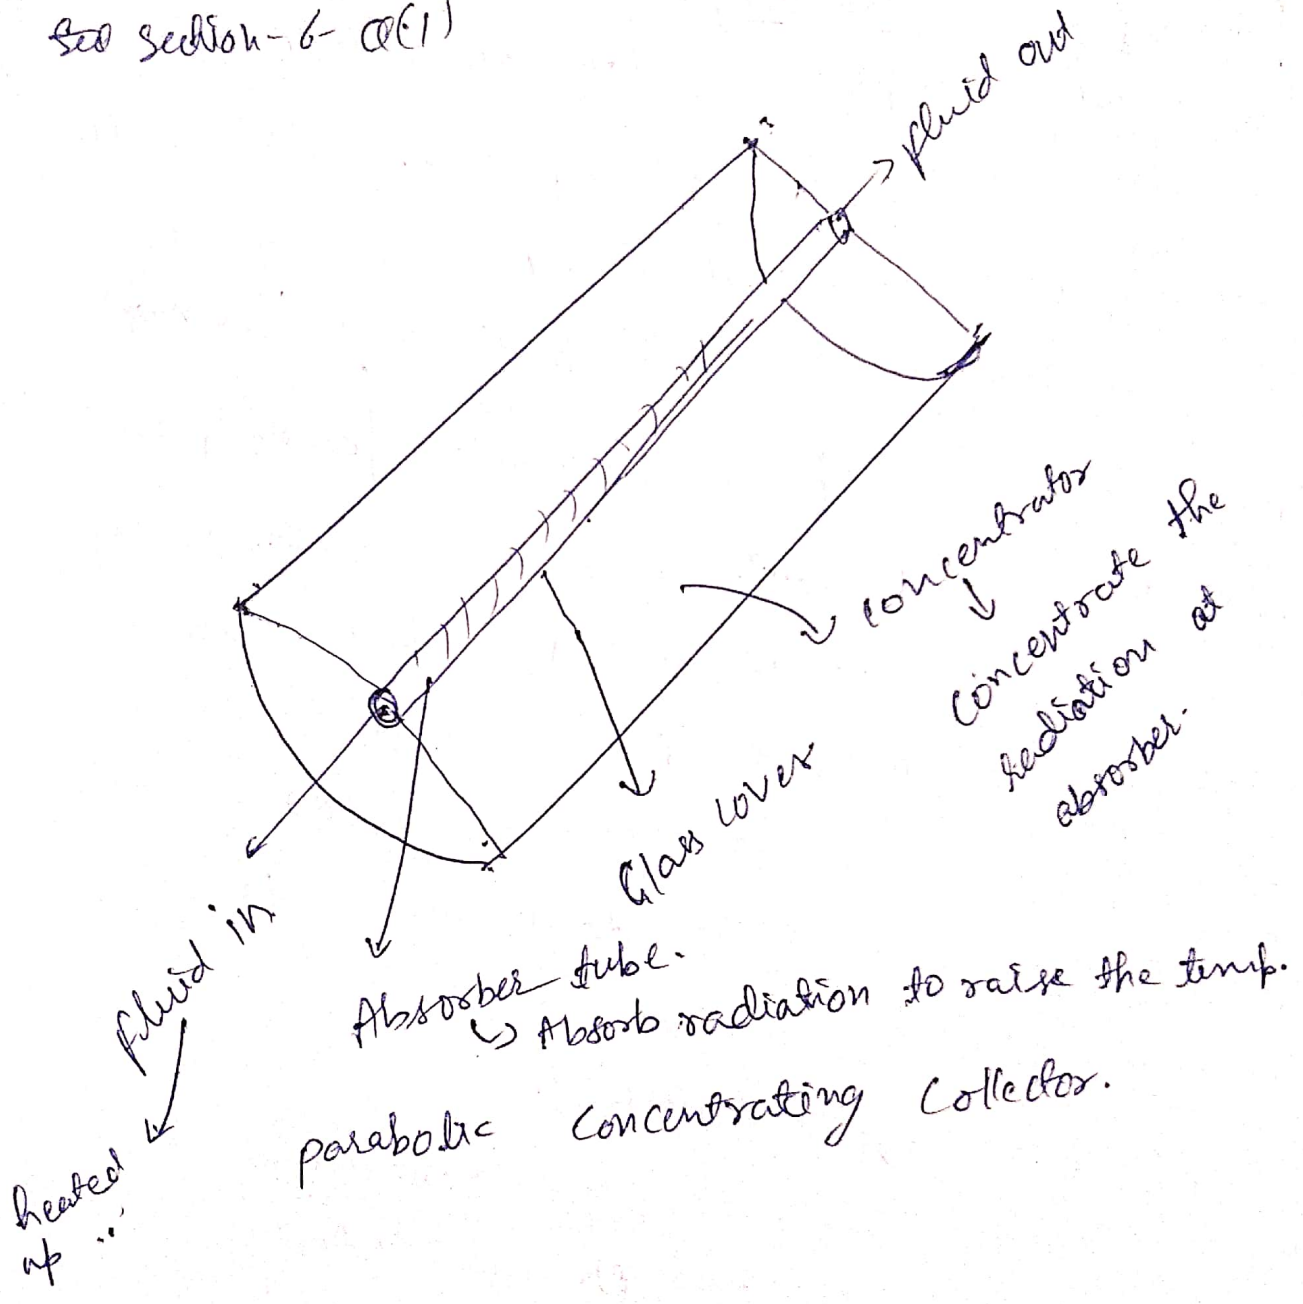 section-6- Q(1)
fluid out
concentrator
concentrate the
radiation at
absorber.
Glass cover
fluid in
heated
up
Absorber tube.
Absorb radiation to raise the temp.
parabolic concentrating collector.